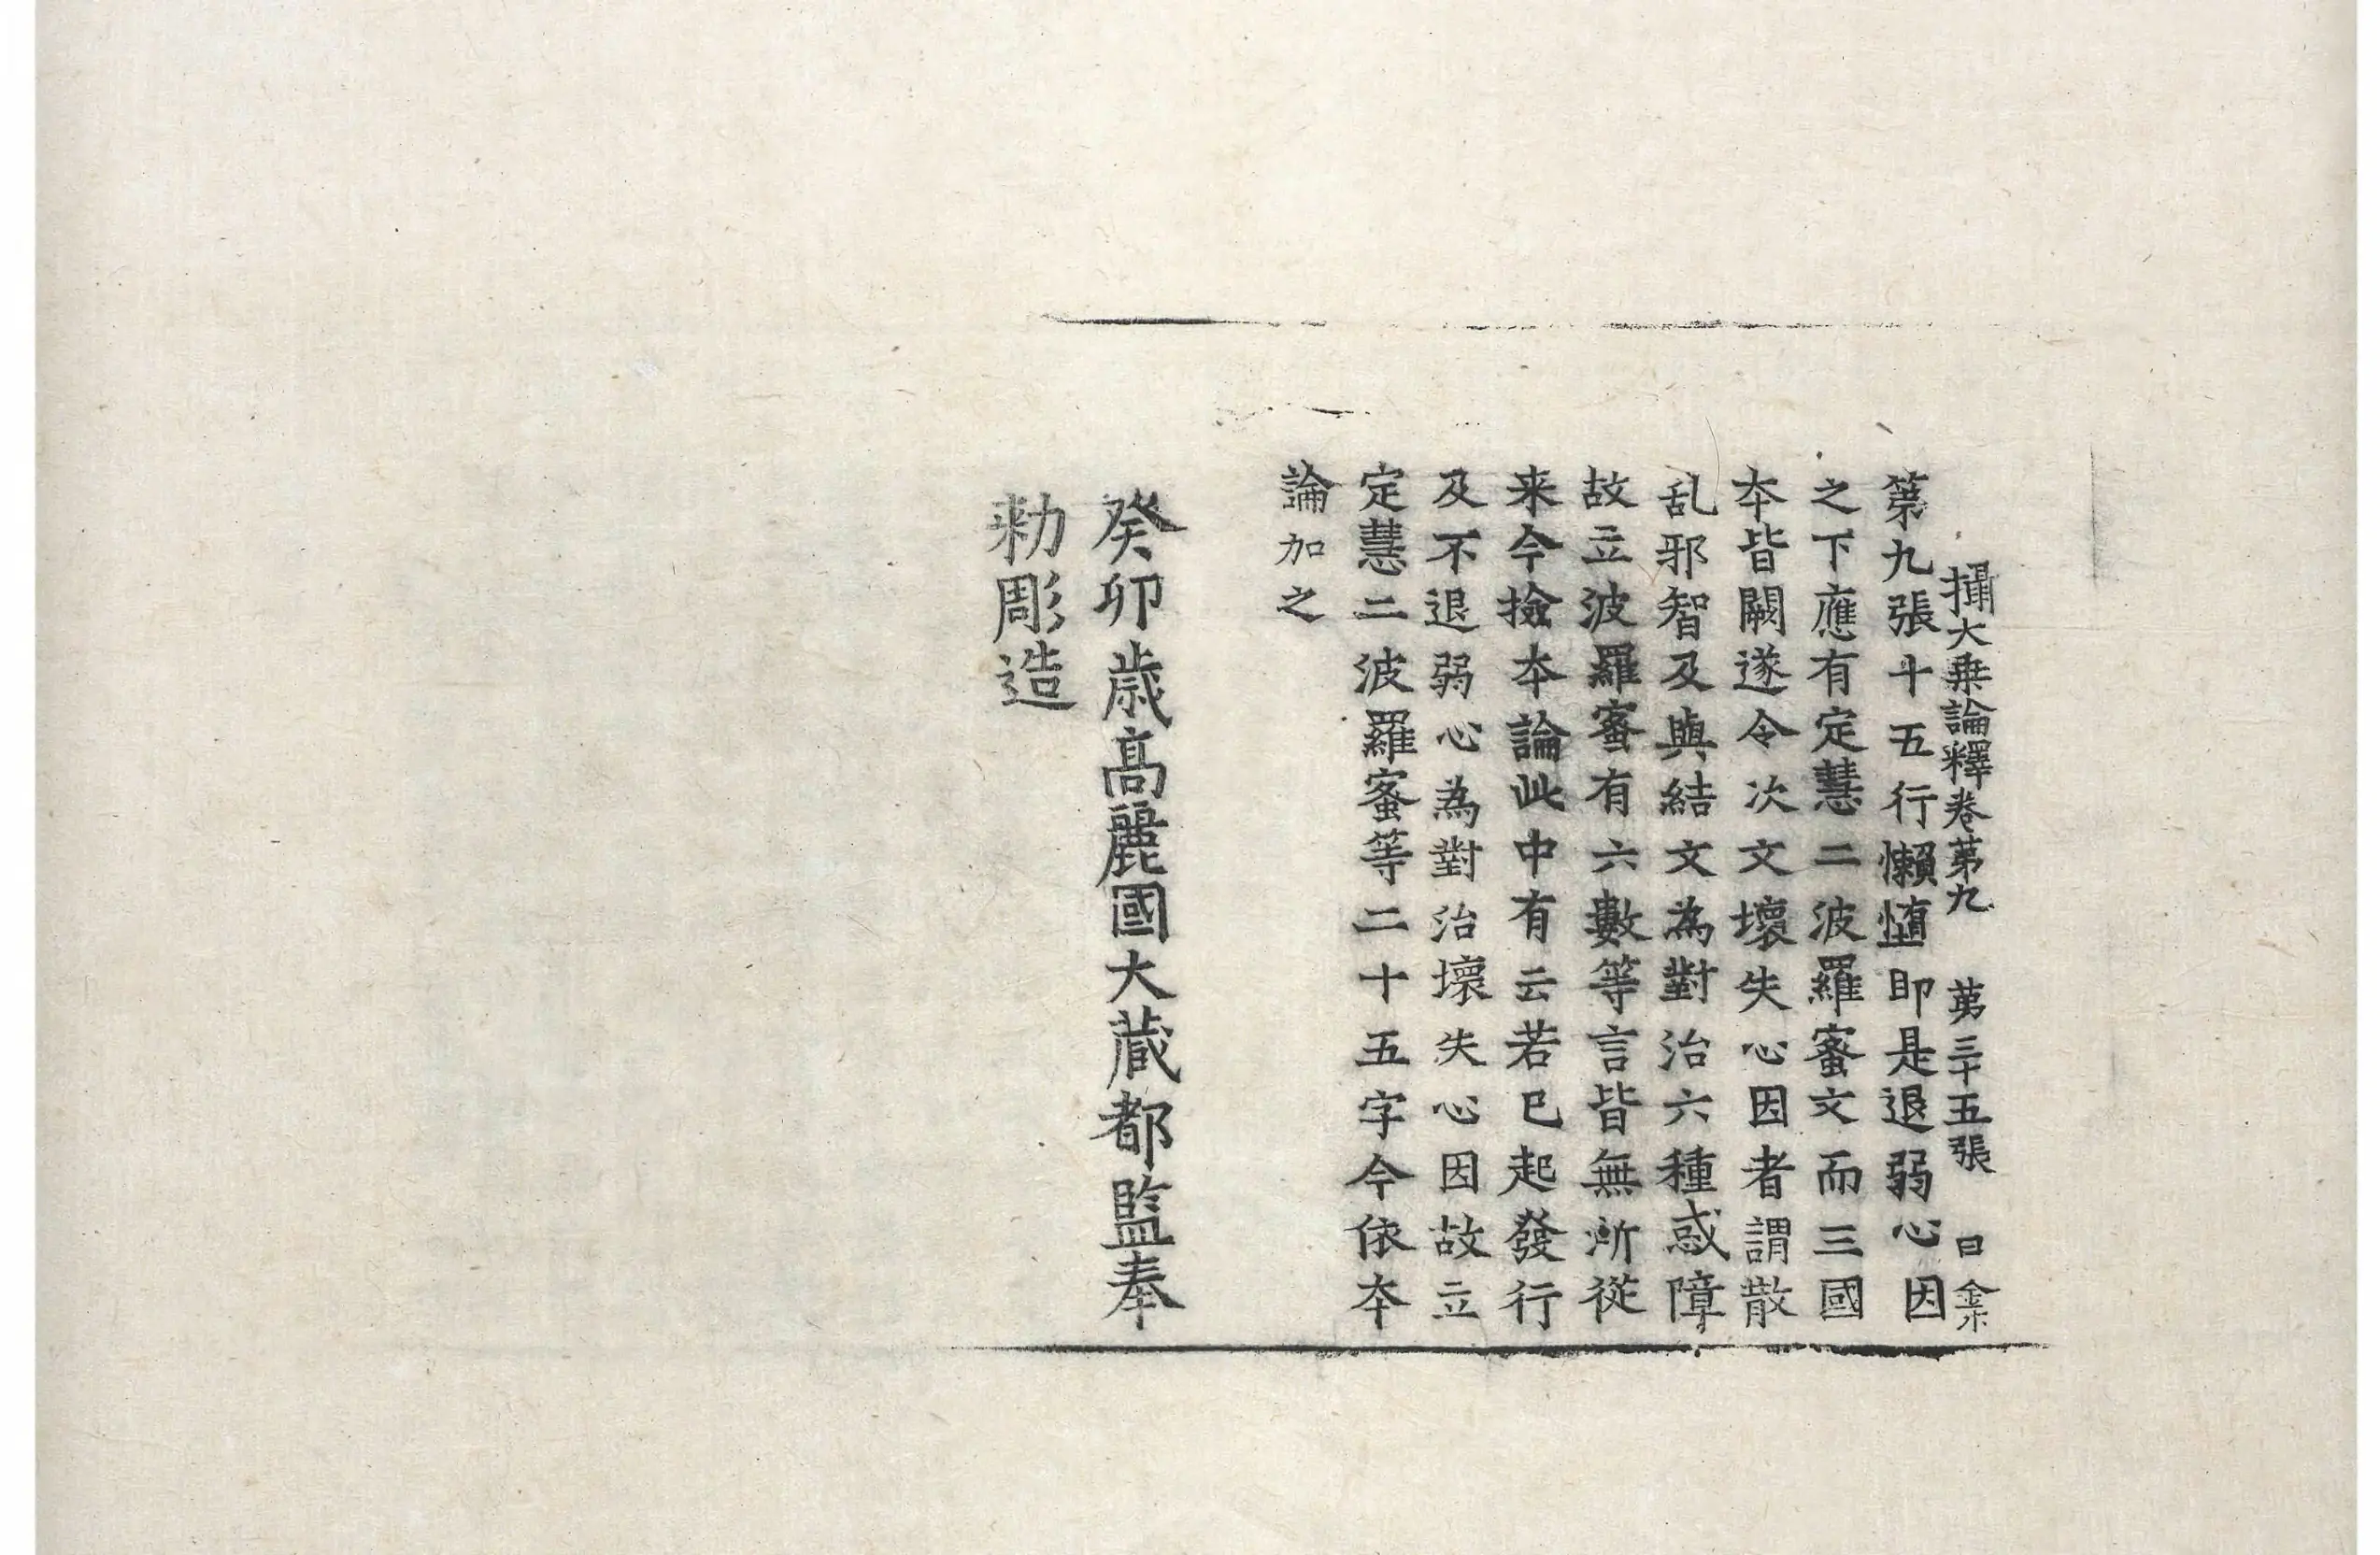 攝大乗論釋卷第九　第三十五張　曰
第九張十五行懶墮即是退弱心因
之下應有定慧二波羅蜜文而三國
夲皆闕遂令次文壞失心因者謂散
乱邪智及與結文為對治六種惑障
故立波羅蜜有六數等言皆無所從
来今撿夲論此中有云若已起發行
及不退弱心為對治壞失心因故立
定慧二波羅蜜等二十五字今依夲
論加之
癸卯歳髙麗國大蔵都監奉
勑彫造